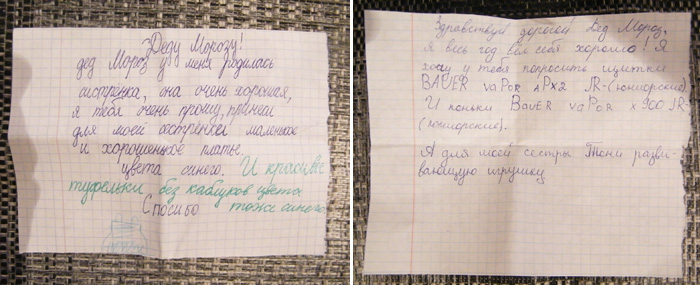 Деду Морозу!
дед Мороз у меня родилась
сестрёнка, она очень хорошая,
я тебя очень прошу, принеси
для моей сестрёнки маленькое
и хорошенькое платье
цвета синего. И красивые
туфельки без каблуков цвета
Спосибо тоже синего
Здравствуй дорогой Дед Мороз,
я весь год вёл себя хорошо! Я
хочу у тебя попросить щитки
BAUER VAPOR APX2 JR-(юниорские)
И коньки BAUER VAPOR X900 JR
(юниорские).
А для моей сестры Тони разви-
вающую игрушку